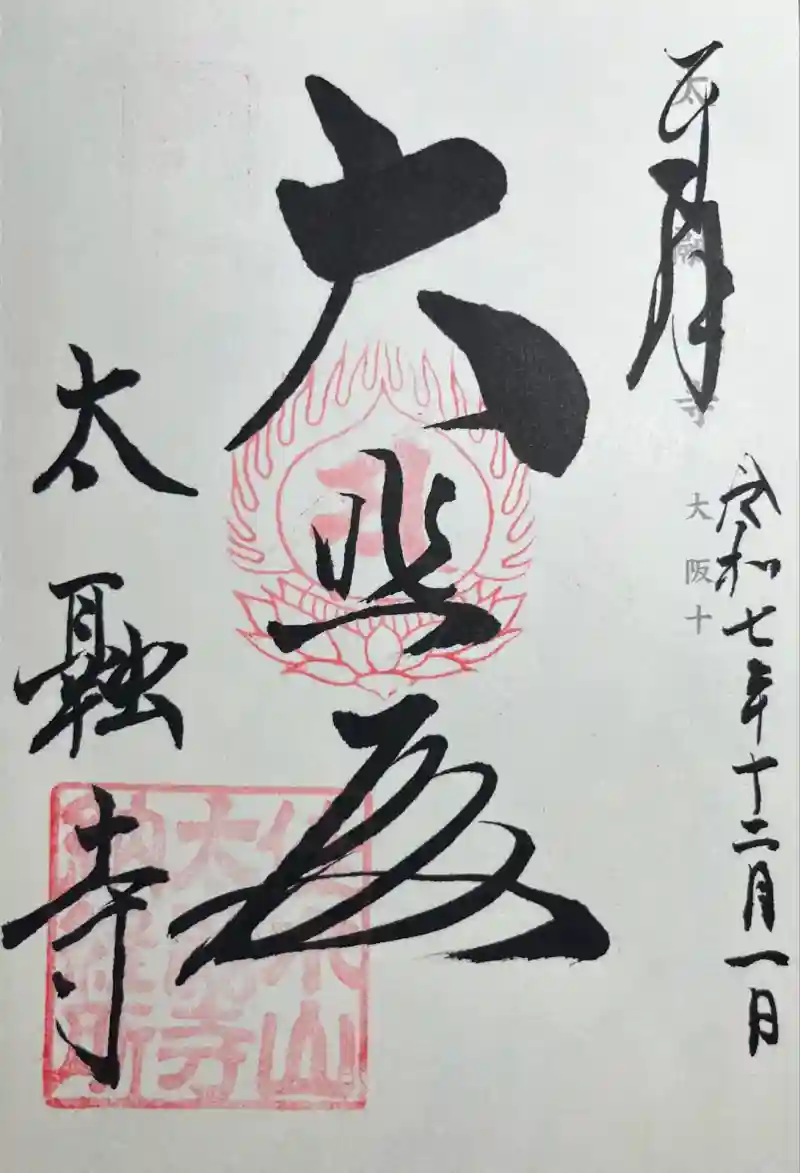 奉拝
令和七年十二月一日
太融寺
大阪十
大悲殿
太融寺
佳木山
太融寺
納経所